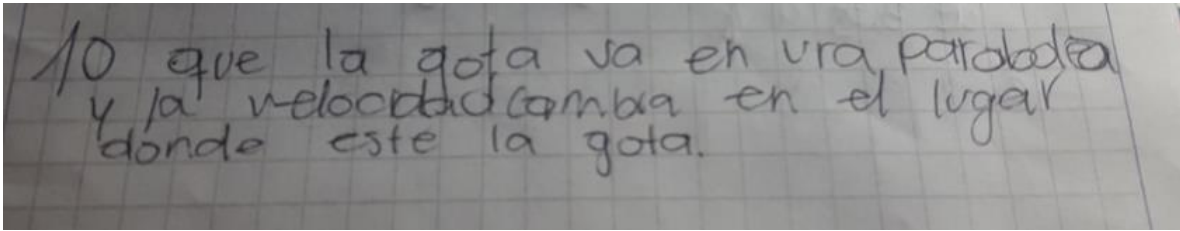 10 que la gota va en una parabola
y la velocidad cambia en el lugar
donde este la gota.